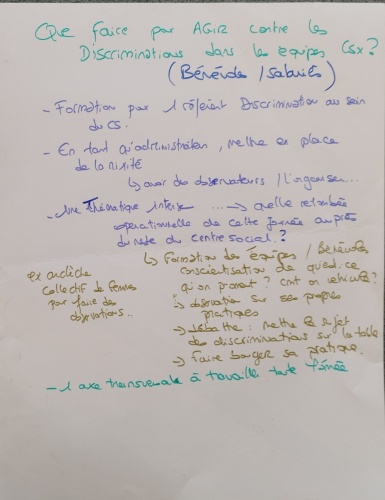 Que faire pour AGIR contre les
Discriminations dans les équipes CSX?
(Bénévoles / Salariés)
- Formation pour 1 référent Discrimination au sein
du CS.
- En tant qu'administration, mettre en place
de la mixité
↳ avoir des observateurs / l'organiser...
- Une Thématique ... → quelle retombée
opérationnelle de cette journée auprès
du reste du centre social?
↳ Formation des équipes / Bénévoles
conscientisation de qu'est ce
qu'on promeut? cmt on véhicule?
ex ardèche
collectif de femmes
pour faire des
observations..
→ observation sur ses propres
pratiques
→ débattre : mettre le sujet
des discriminations sur la table
→ Faire bouger sa pratique.
- 1 axe transversale à travailler toute l'année